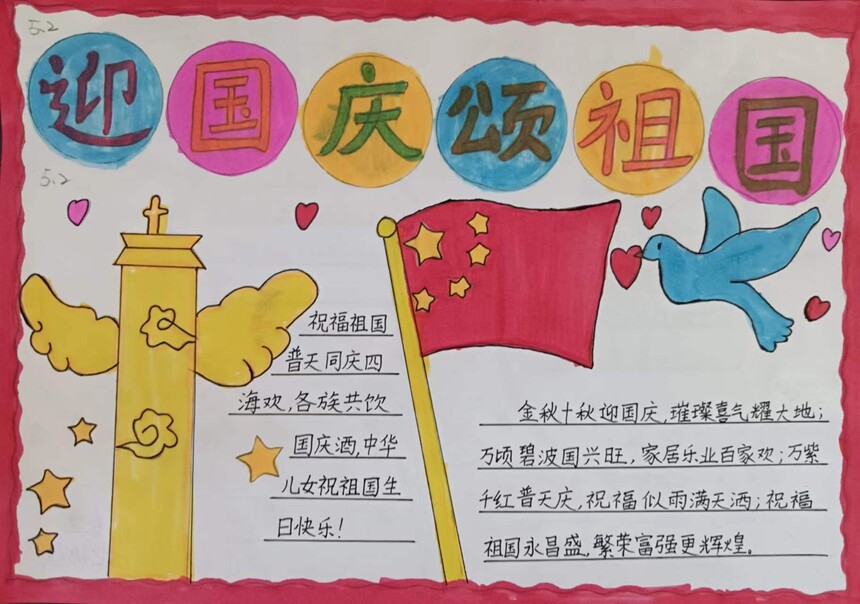 5.2
迎国庆颂祖国
5.2
祝福祖国
普天同庆四
海欢,各族共饮
国庆酒,中华
儿女祝祖国生
日快乐!
金秋十秋迎国庆,璀璨喜气耀大地;
万顷碧波国兴旺,家居乐业百家欢;万紫
千红普天庆,祝福似雨满天洒;祝福
祖国永昌盛,繁荣富强更辉煌。